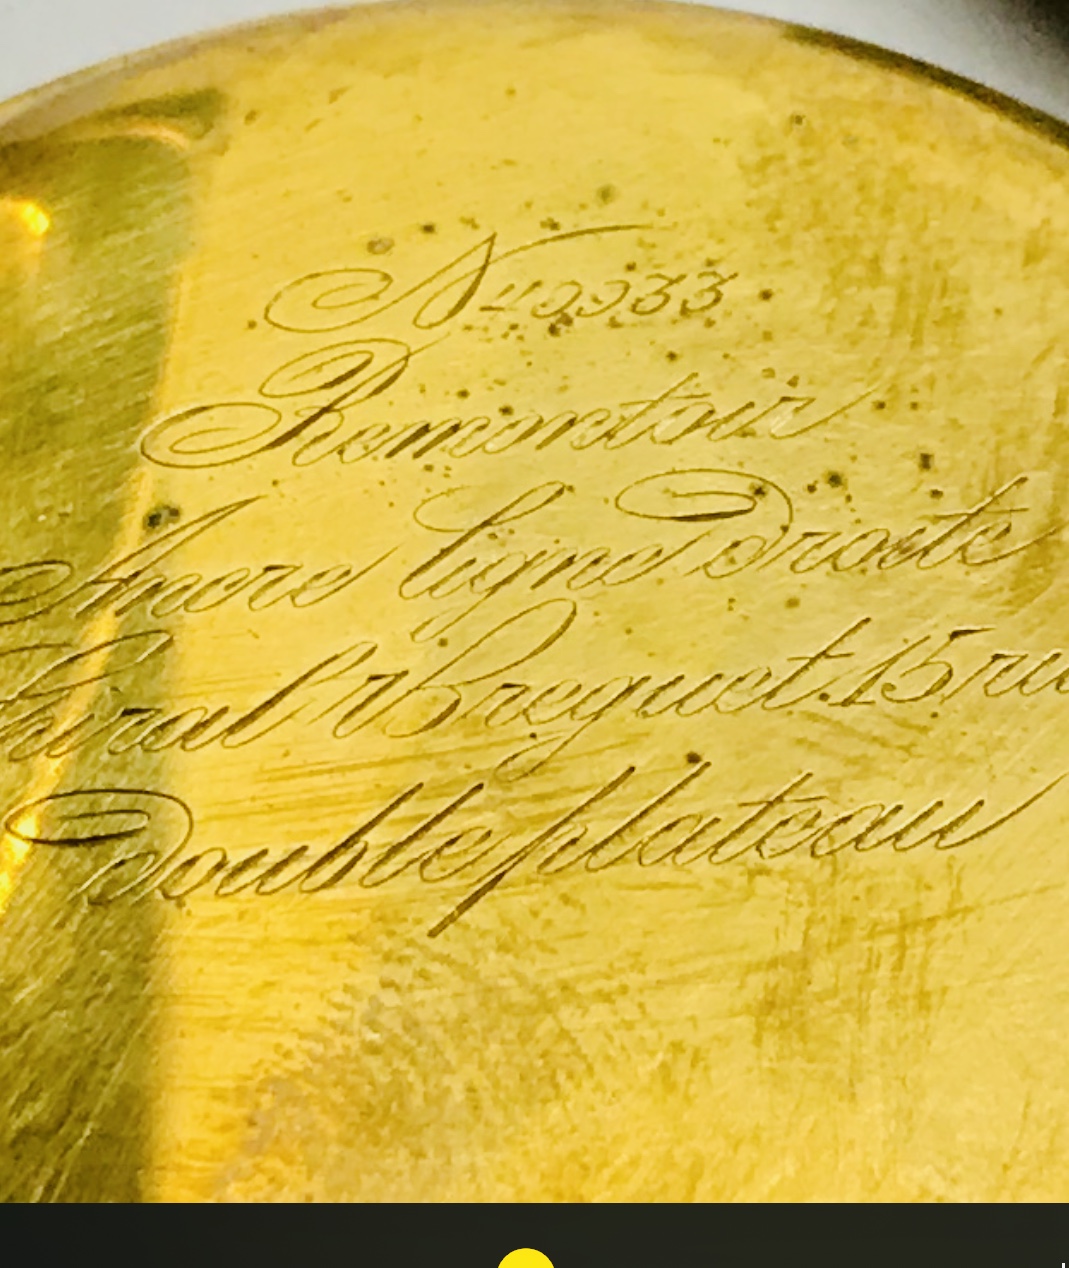 N
Remontoir
Ancre ligne Droite
Spiral Breguet. 15 ru
Double plateau